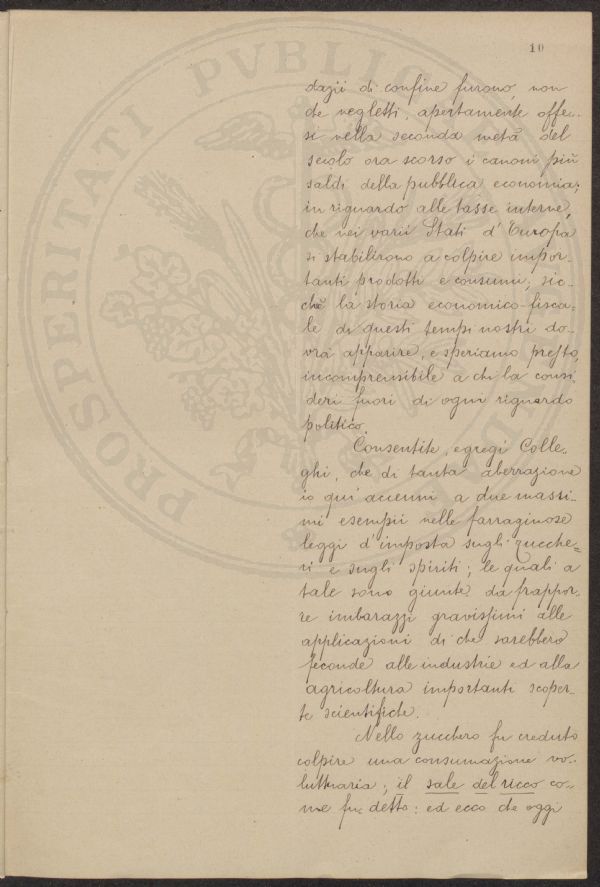 10
PROSPERITATI PVBLIC
dazii di confine furono, non
che negletti, apertamente offe-
si nella seconda metà del
secolo ora scorso i canoni più
saldi della pubblica economia;
in riguardo alle tasse interne,
che nei varii Stati d'Europa
si stabilirono a colpire impor-
tanti prodotti e consumi; sic-
chè la storia economico-fisca-
le di questi tempi nostri do-
vrà apparire, e speriamo presto,
incomprensibile a chi la consi-
deri fuori di ogni riguardo
politico.
Consentite, egregi Colle-
ghi, che di tanta aberrazione
io qui accenni a due massi-
mi esempii nelle farraginose
leggi d'imposta sugli zucche-
ri e sugli spiriti; le quali a
tale sono giunte da frappor-
re imbarazzi gravissimi alle
applicazioni di che sarebbero
feconde alle industrie ed alla
agricoltura importanti scoper-
te scientifiche.
Nello zucchero fu creduto
colpire una consumazione vo-
luttuaria; il sale del ricco co-
me fu detto: ed ecco che oggi